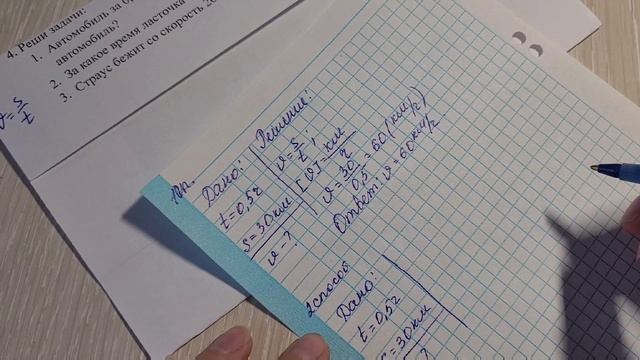 4. Реши задачи:
1. Автомобиль за
автомобиль?
2. За какое время ласточка
3. Страус бежит со скорость
υ = s/t
1 ур.
Дано:
t = 0,5 ч
s = 30 км
υ - ?
Решение:
υ = s/t ;
[υ] = км/ч
υ = 30/0,5 = 60 (км/ч)
Ответ: υ = 60 км/ч
2 способ
Дано:
t = 0,5 ч
s = 30 км
?